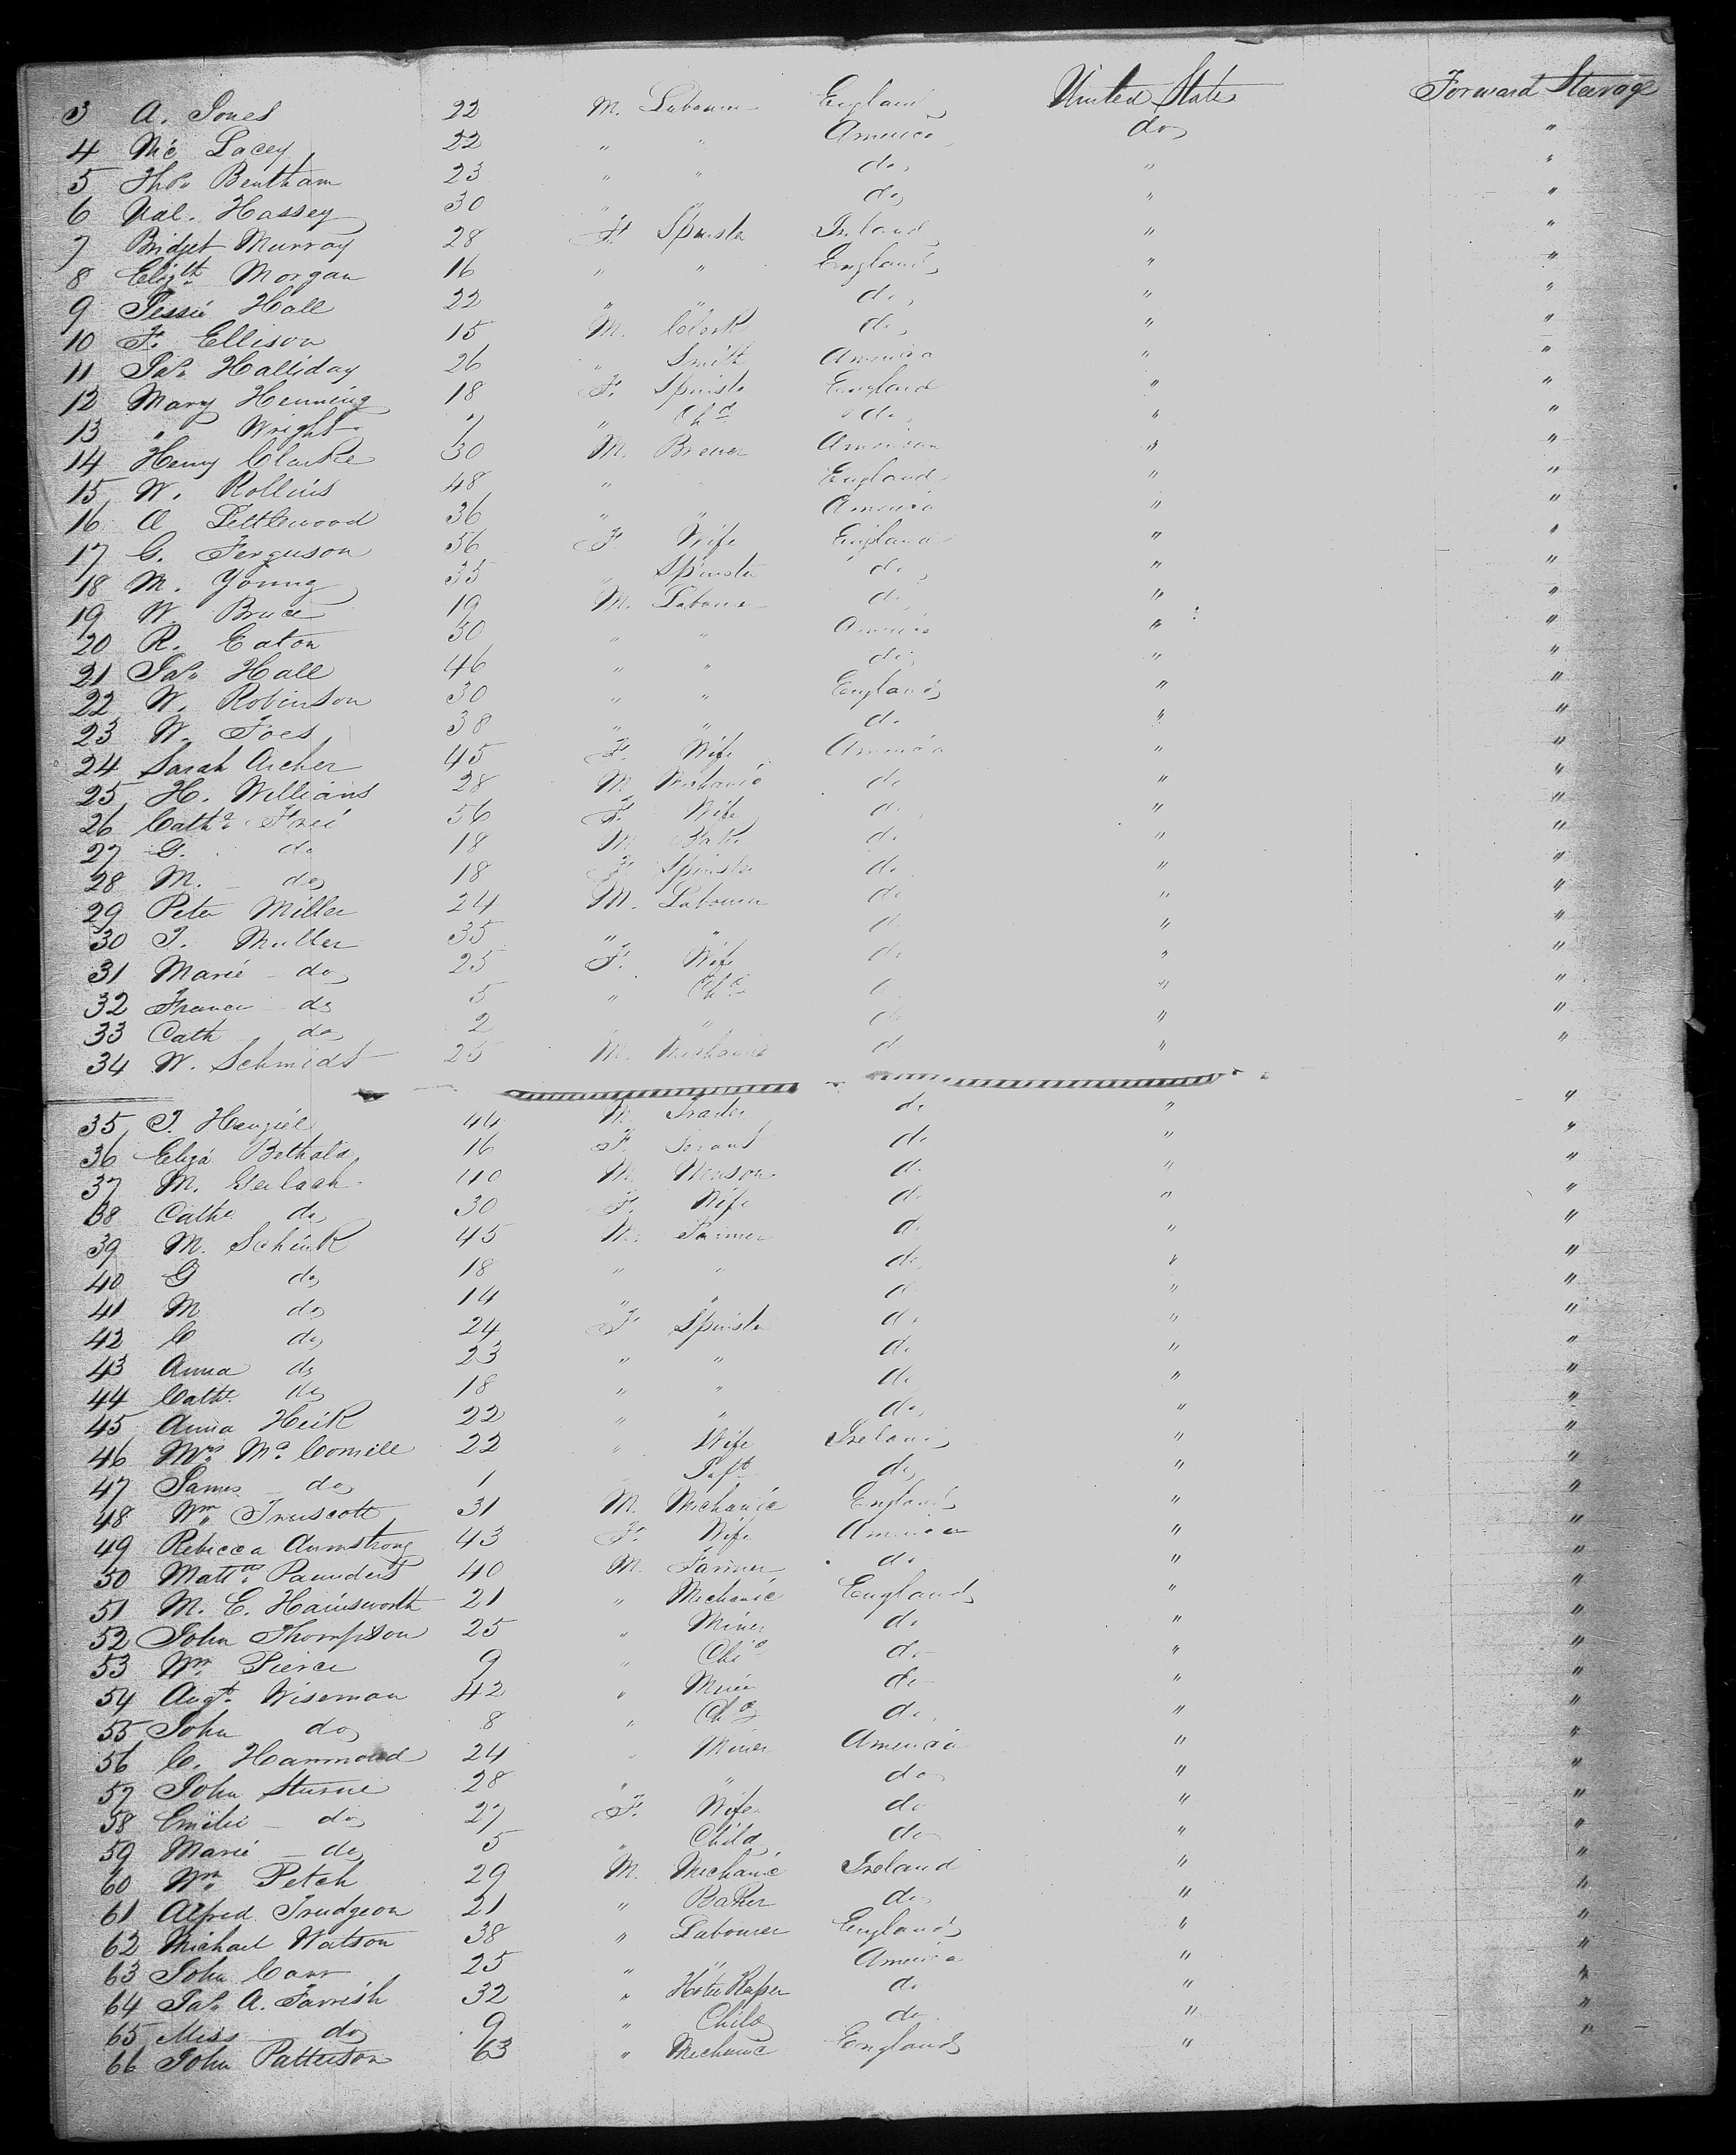 3 A. Jones 22 M. Labourer England United States Forward Steerage
4 Mc Lacey 22 " " America do "
5 Thos. Bentham 23 " " do " "
6 Nal. Hassey 30 " " do " "
7 Bridget Murray 28 F. Spinster Ireland " "
8 Elizth Morgan 16 " " England " "
9 Jessie Hall 22 " " do " "
10 F. Ellison 15 M. Clerk do " "
11 Jas. Halliday 26 " Smith America " "
12 Mary Henning 18 F. Spinster England " "
13 " Wright 7 " Chd do " "
14 Henry Clarke 30 M. Brewer American " "
15 W. Rollins 48 " " England " "
16 A Littlewood 36 " " America " "
17 G. Ferguson 56 F. Wife England " "
18 M. Young 35 " Spinster do " "
19 W. Bruce 19 M. Labourer do " "
20 R. Eaton 30 " " America " "
21 Jas. Hall 46 " " do " "
22 W. Robinson 30 " " England " "
23 W. Foes 38 " " do " "
24 Sarah Archer 45 F. Wife America " "
25 H. Williams 28 M Mechanic do " "
26 Cathe. Frei 56 F. Wife do " "
27 G. do 18 M do " "
28 M. do 18 F. Spinster do " "
29 Peter Miller 24 M. Labourer do " "
30 J. Muller 35 " " do " "
31 Marie do 25 F. Wife do " "
32 France do 5 " Chd do " "
33 Cath do 2 " " do " "
34 W. Schmidt 25 M. Mechanic do " "
35 J. 44 M. Trader do " "
36 Eliza Bethald 16 F. Servant do " "
37 M. Gerlach 40 M. Mason do " "
38 Cathe do 30 F. Wife do " "
39 M. Schink 45 M. Farmer do " "
40 G do 18 " " do " "
41 M do 14 " " do " "
42 C do 24 F Spinster do " "
43 Anna do 23 " " do " "
44 Cathe do 18 " " do " "
45 Anna Heik 22 " " do " "
46 Mrs. Mc Connell 22 " Wife Ireland " "
47 James do 1 Inft do " "
48 Wm. Truscott 31 M. Mechanic England " "
49 Rebecca Armstrong 43 F. Wife America " "
50 Matts. Paunders 40 M. Farmer do " "
51 M. E. Hainsworth 21 " Mechanic England " "
52 John Thompson 25 " Miner do " "
53 Wm. Pierce 9 " Chd do " "
54 Augt. Wiseman 42 " Miner do " "
55 John do 8 " Chd do " "
56 C. Hammond 24 " Miner America " "
57 John Sturne 28 " " do " "
58 Emilie do 27 F. Wife do " "
59 Marie do 5 " Child do " "
60 Wm. Petch 29 M. Mechanic Ireland " "
61 Alfred Trudgeon 21 " Baker do " "
62 Michael Watson 38 " Labourer England " "
63 John Carr 25 " " America " "
64 Jas. A. Farrish 32 " do " "
65 Miss do 9 " Child do " "
66 John Patterson 63 " Mechanic England " "